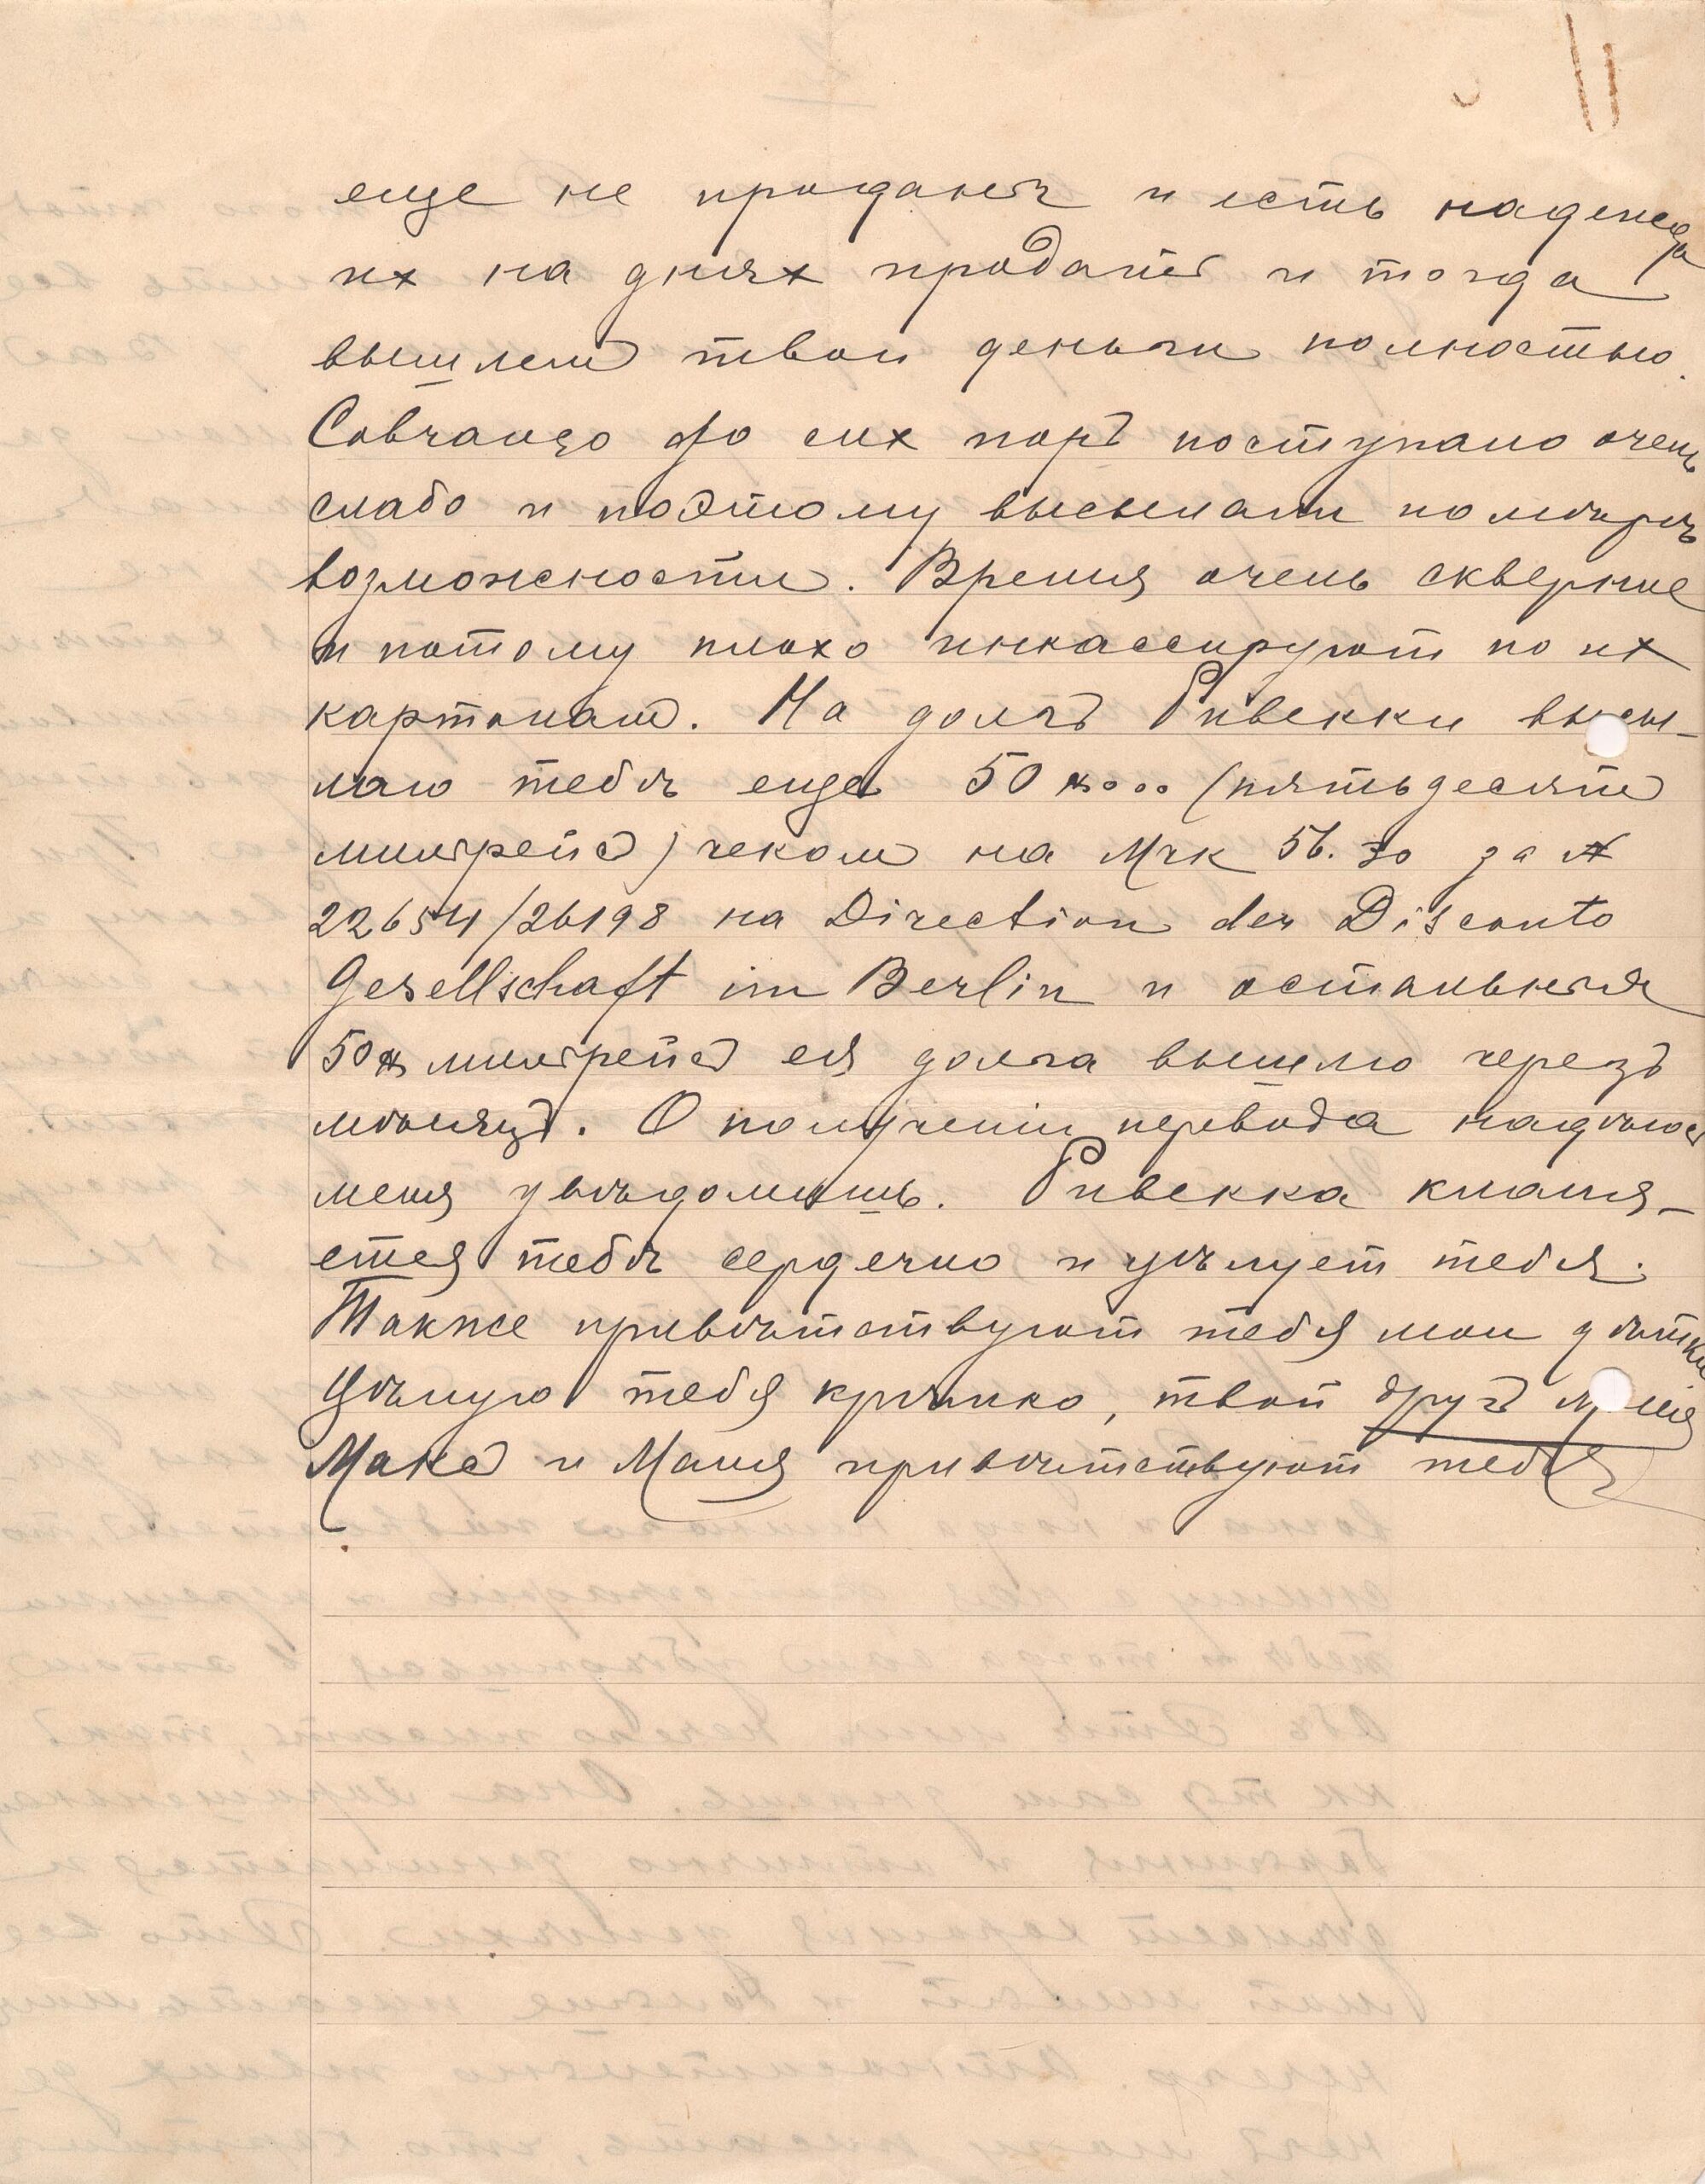 еще не проданы и есть надежда
их на днях продать и тогда
вышлем твои деньги полностью.
до сих поръ поступало очень
слабо и поэтому высылали по мѣрѣ
возможности. Время очень скверное
и потому плохо инкассируют по их
картонам. На долгъ Ривекки высы-
лаю тебѣ еще 50 $000 (пятьдесят
мильрейс) чеком на Мрк 56.30 за №
22654/26198 на Direction der Disconto
Gesellschaft in Berlin и остальныя
50$ мильрейс ея долга вышлю через
мѣсяцъ. О получении перевода надѣюсь
меня увѣдомишь. Ривекка кланя-
ется тебѣ сердечно и цѣлует тебя.
Также привѣтствуют тебя мои дѣтки
Цѣлую тебя крѣпко, твой другъ
Макс и Маня привѣтствуют тебя